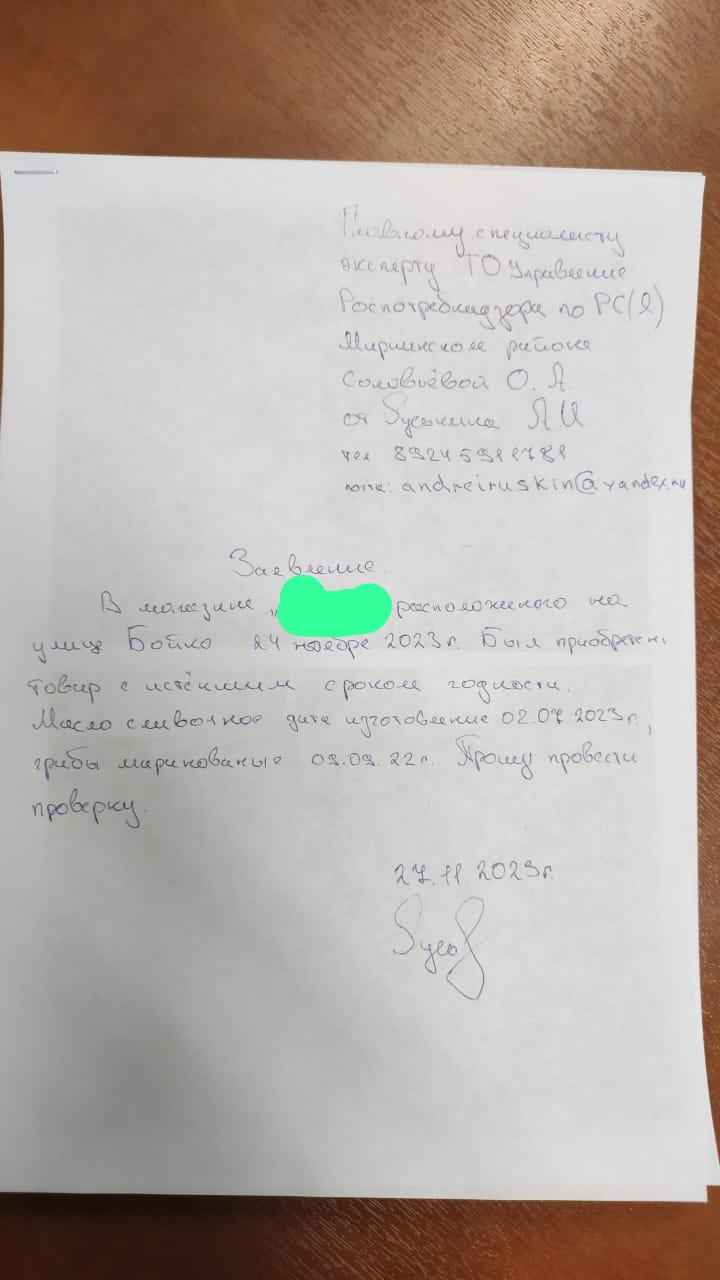 Главному специалисту
эксперту ТО Управление
Роспотребнадзора по РС(Я)
Мирнинском районе
Соловьёвой О. А.
от А.И
тел
почта: andreiruskin@yandex.ru
Заявление.
В магазине „ расположеного на
улице Бойко 24 ноября 2023г. Был приобретен
товар с истёкшим сроком годности.
Масло сливочное дата изготовление 02.07.2023г.,
грибы маринованые 09.09.22г. Прошу провести
проверку.
27.11.2023г.